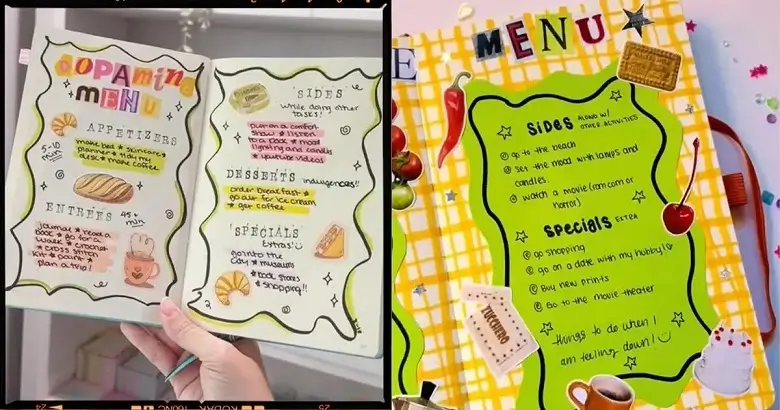 DOPAMINE
MENU
APPETIZERS
5-10
min
make bed * skincare *
planner * tidy my
desk * make coffee
ENTRÉES
45+
min
journal * read a
book * go for a
walk * crochet
* cross stitch
kit * paint *
plan a trip!
SIDES
while doing other
tasks!
put on a comfort
show * listen
to a book * mood
lighting and candle
* youtube videos
DESSERTS
indulgences!!
order breakfast *
go out for ice cream
* get coffee
SPECIALS
Extras!
go into the
city * museums
* book stores
* shopping!!
E
MENU
Sides ALONG W/
OTHER ACTIVITIES
go to the beach
Set the mood with lamps and
candles.
Watch a movie (rom com or
horror)
Specials EXTRA
go shopping
go on a date with my hubby!
Buy new prints
Go to the movie theater
Things to do when I
am feeling down!
ZUCCHERO
24
KODAK
25